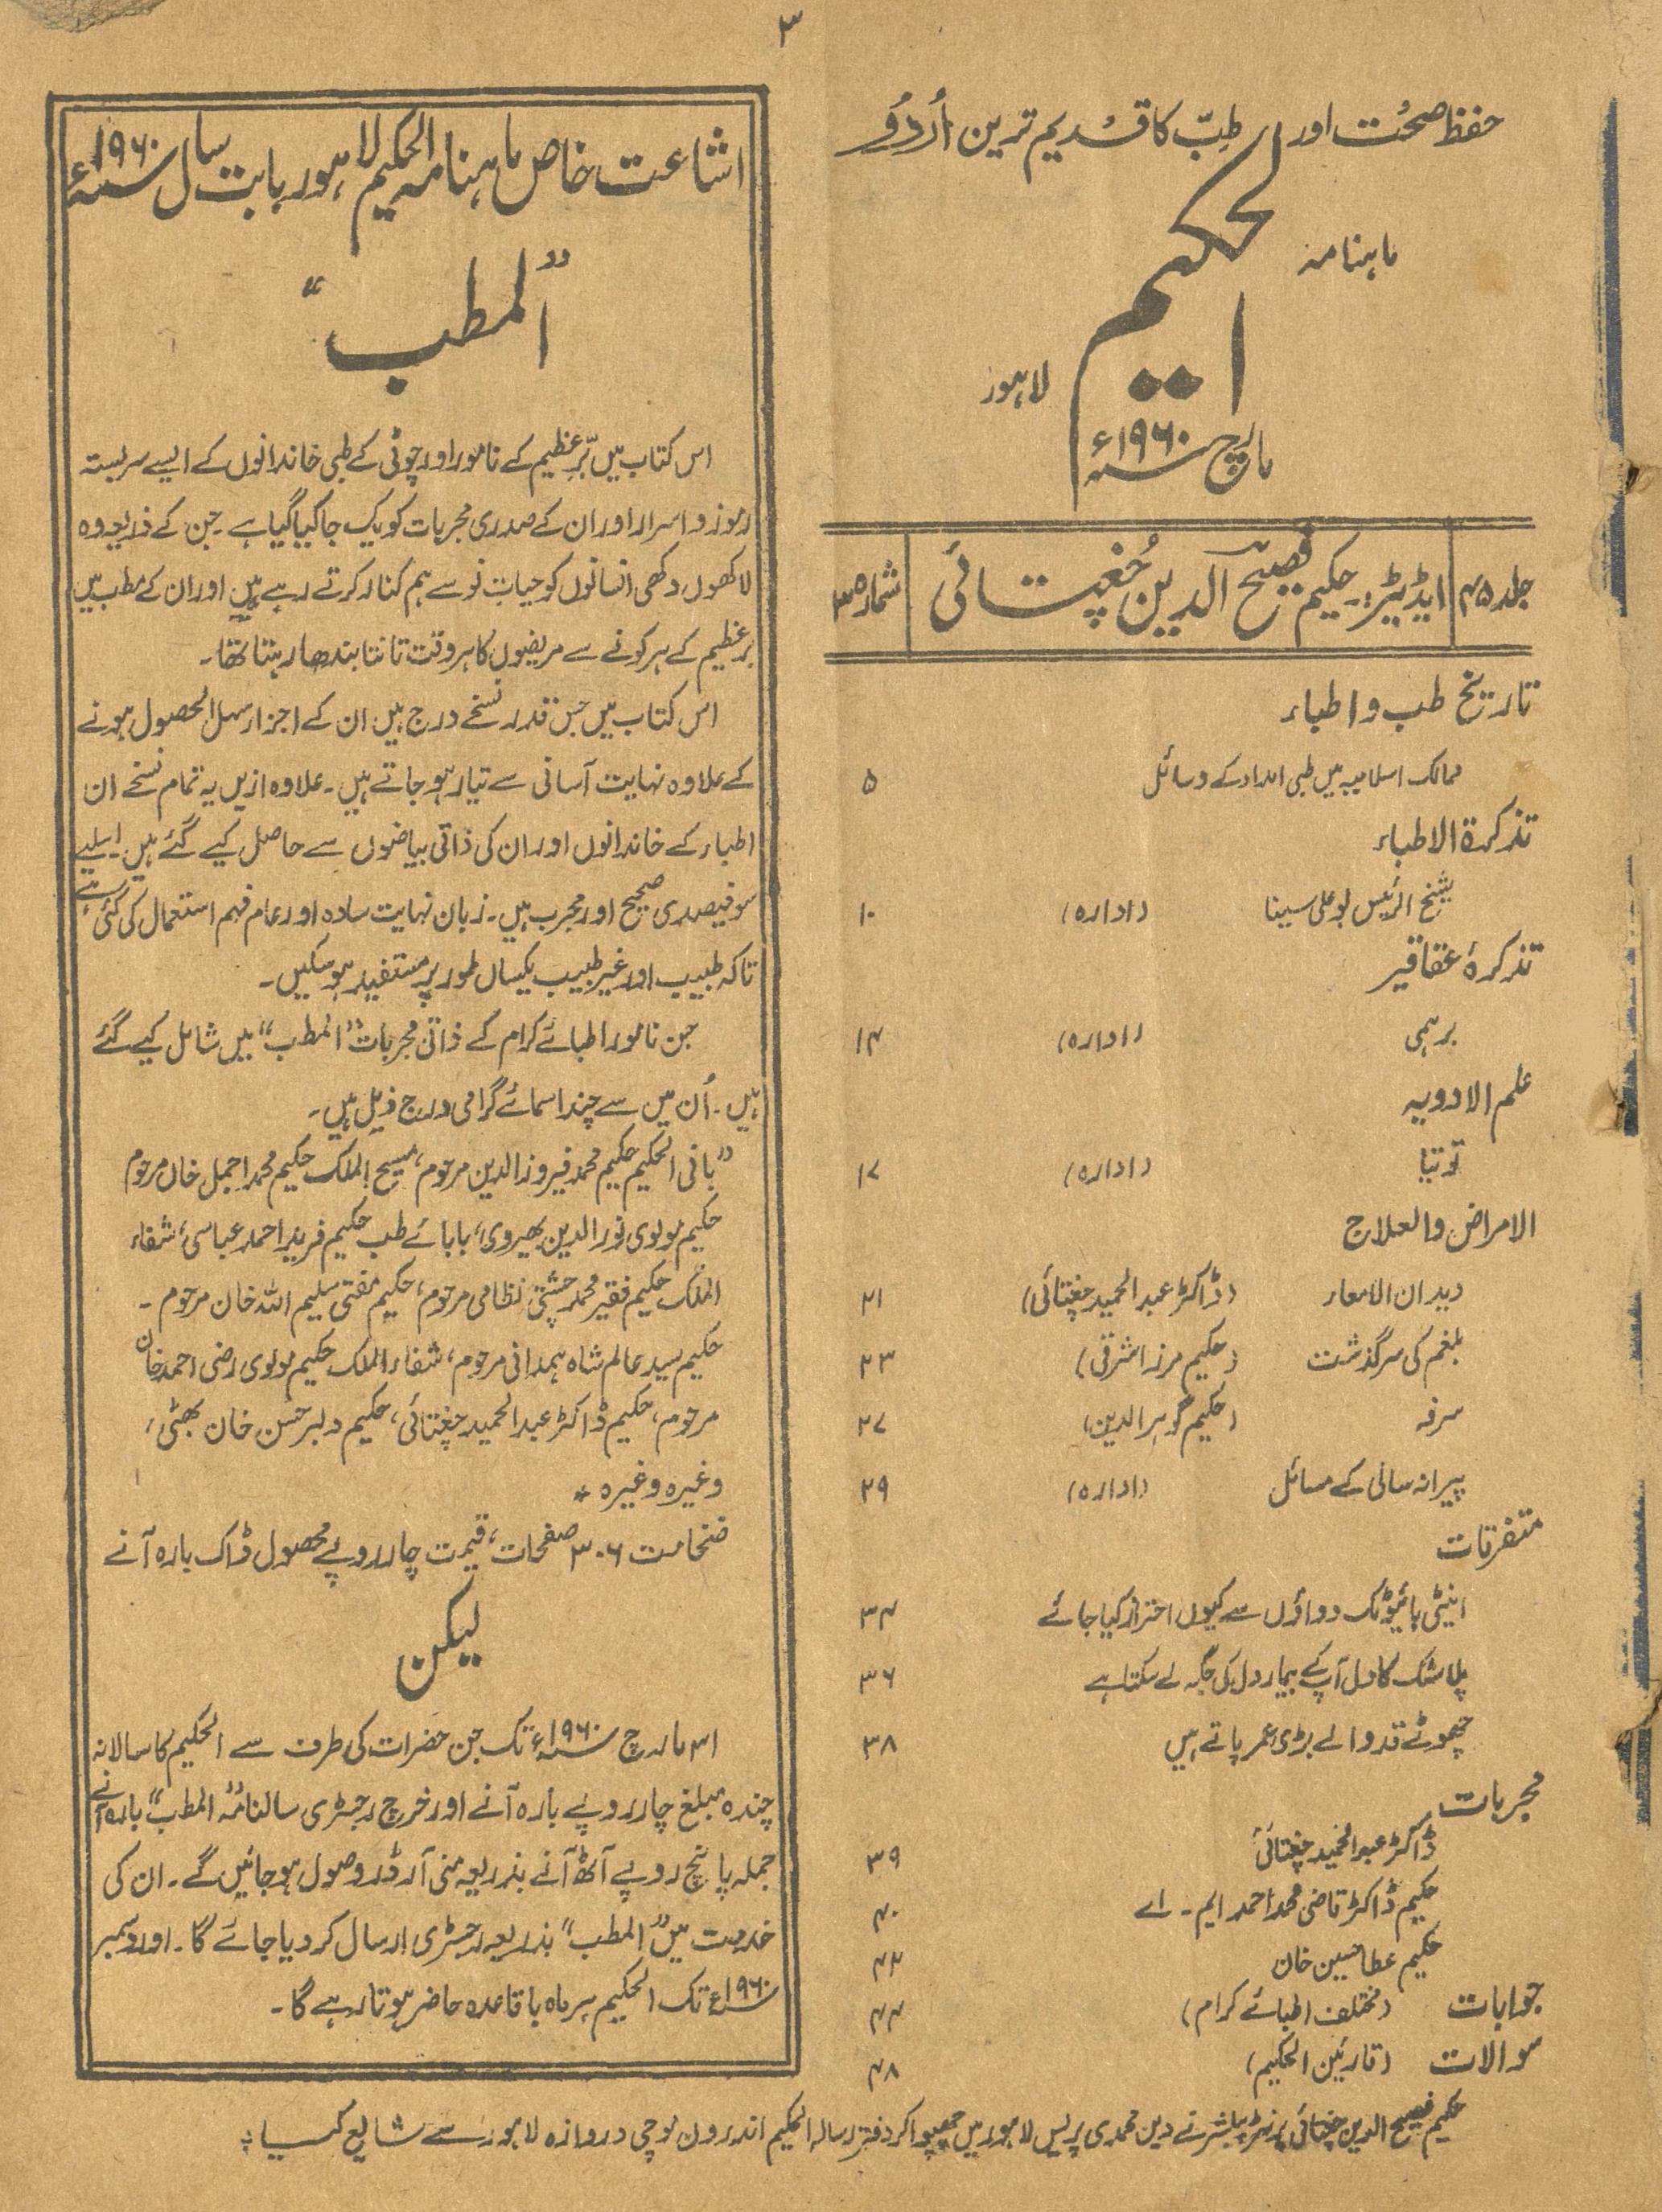 ۳
حفظ صحت اور طبّ کا قدیم ترین اُردُو
ماہنامہ
الحکیم
لاہور
مارچ سنہ ۱۹۶۰ء
جلد ۴۵ ایڈیٹر:۔ حکیم فصیح الدین چُغتائی شمارہ ۳
تاریخ طب و اطباء
ممالک اسلامیہ میں طبی امداد کے وسائل ۵
تذکرۃ الاطباء
شیخ الرئیس بو علی سینا (ادارہ) ۱۰
تذکرۂ عقاقیر
برہمی (ادارہ) ۱۴
علم الادویہ
توتیا (ادارہ) ۱۷
الامراض والعلاج
دیدان الامعاء (ڈاکٹر عبدالحمید چغتائی) ۲۱
بلغم کی سرگذشت (حکیم مرزا شرقی) ۲۳
سرفہ (حکیم گوہر الدین) ۲۷
پیرانہ سالی کے مسائل (ادارہ) ۲۹
متفرقات
اینٹی بائیوٹک دواؤں سے کیوں احتراز کیا جائے ۳۴
پلاسٹک کا دل آپ کے بیمار دل کی جگہ لے سکتا ہے ۳۶
چھوٹے قد والے بڑی عمر پاتے ہیں ۳۸
مجربات
ڈاکٹر عبدالحمید چغتائی ۳۹
حکیم ڈاکٹر قاضی محمد احمد ایم۔ اے ۴۰
حکیم عطا حسین خان ۴۲
جوابات (مختلف اطبائے کرام) ۴۴
سوالات (قارئین الحکیم) ۴۸
اشاعت خاص ماہنامہ الحکیم لاہور بابت سال سنہ ۱۹۶۰ء
”المطب“
اس کتاب میں برِّعظیم کے نامور اور چوٹی کے طبی خاندانوں کے ایسے سربستہ
رموز و اسرار اور ان کے صدری مجربات کو یک جا کیا گیا ہے۔ جن کے ذریعہ وہ
لاکھوں دکھی انسانوں کو حیاتِ نو سے ہم کنار کرتے رہے ہیں اور ان کے مطب میں
برعظیم کے ہر کونے سے مریضوں کا ہر وقت تانتا بندھا رہتا تھا۔
اس کتاب میں جس قدر نسخے درج ہیں ان کے اجزار سہل الحصول ہونے
کے علاوہ نہایت آسانی سے تیار ہو جاتے ہیں۔ علاوہ ازیں یہ تمام نسخے ان
اطباء کے خاندانوں اور ان کی ذاتی بیاضوں سے حاصل کیے گئے ہیں۔ اسلیے
سو فیصدی صحیح اور مجرب ہیں۔ زبان نہایت سادہ اور عام فہم استعمال کی گئی ہے
تاکہ طبیب اور غیر طبیب یکساں طور پر مستفید ہو سکیں۔
جن نامور اطبائے کرام کے ذاتی مجربات ”المطب“ میں شامل کیے گئے
ہیں۔ اُن میں سے چند اسمائے گرامی درج ذیل ہیں۔
”بانی الحکیم حکیم محمد فیروزالدین مرحوم، مسیح الملک حکیم محمد اجمل خان مرحوم
حکیم مولوی نورالدین بھیروی، بابائے طب حکیم فرید احمد عباسی، شفاء
الملک حکیم فقیر محمد چشتی نظامی مرحوم، حکیم مفتی سلیم اللہ خان مرحوم۔
حکیم سید عالم شاہ ہمدانی مرحوم، شفاء الملک حکیم مولوی رضی احمد خان
مرحوم، حکیم ڈاکٹر عبدالحمید چغتائی، حکیم دلبر حسن خان بھٹی،
وغیرہ وغیرہ *
ضخامت ۳۰۶ صفحات، قیمت چار روپے محصول ڈاک بارہ آنے
لیکن
۳۱ مارچ سنہ ۱۹۶۰ء تک جن حضرات کی طرف سے الحکیم کا سالانہ
چندہ مبلغ چار روپے بارہ آنے اور خرچ رجسٹری سالنامہ ”المطب“ بارہ آنے
جملہ پانچ روپے آٹھ آنے بذریعہ منی آرڈر وصول ہو جائیں گے۔ ان کی
خدمت میں ”المطب“ بذریعہ رجسٹری ارسال کر دیا جائے گا۔ اور دسمبر
سنہ ۱۹۶۰ء تک الحکیم ہر ماہ باقاعدہ حاضر ہوتا رہے گا۔
حکیم فصیح الدین چغتائی پرنٹر پبلشر نے دین محمدی پریس لاہور میں چھپوا کر دفتر رسالہ الحکیم اندرون موچی دروازہ لاہور سے شایع کیا